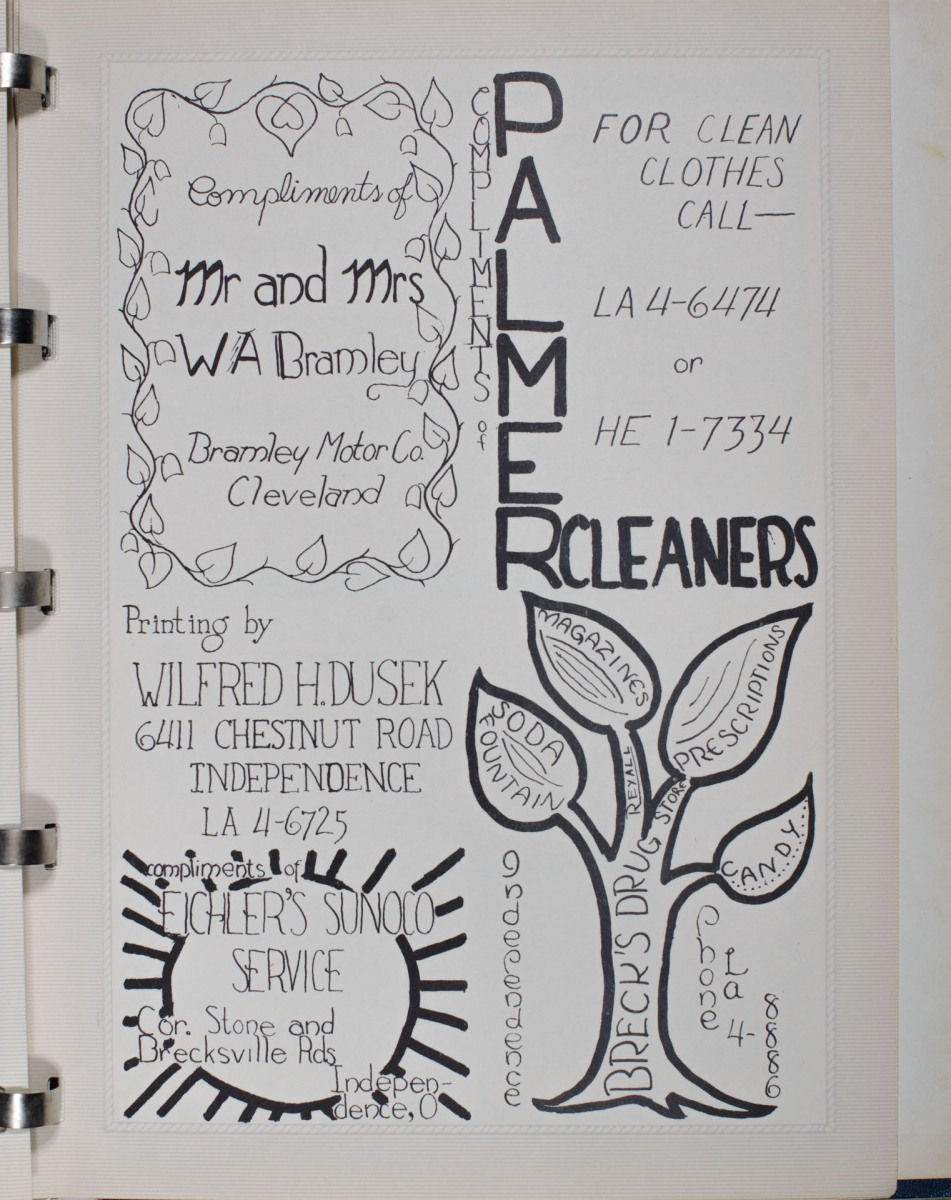 Compliments of
Mr and Mrs
WA Bramley
Bramley Motor Co.
Cleveland
COMPLIMENTS of
PALMER CLEANERS
FOR CLEAN
CLOTHES
CALL—
LA 4-6474
or
HE 1-7334
Printing by
WILFRED H. DUSEK
6411 CHESTNUT ROAD
INDEPENDENCE
LA 4-6725
compliments of
EICHLER'S SUNOCO
SERVICE
Cor. Stone and
Brecksville Rds
Indepen-
dence, O
MAGAZINES
PRESCRIPTIONS
SODA
FOUNTAIN
CANDY
BRECK'S DRUG STORE
REXALL
Independence
Phone
La
4-
8886